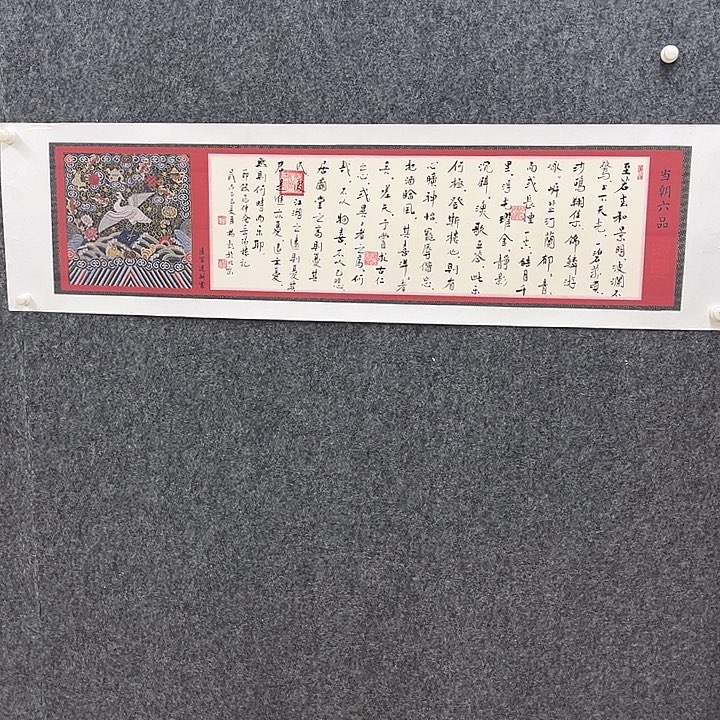 当朝六品
至若春和景明波澜不
惊上下天光一碧万顷
沙鸥翔集锦鳞游
泳岸芷汀兰郁青
而或长烟一空皓月千
里浮光耀金静影
沉璧渔歌互答此乐
何极登斯楼也则有
心旷神怡宠辱偕忘
把酒临风其喜洋者
矣嗟夫予尝求古仁
之心或异者之为何
哉不以物喜不以己悲
居庙堂之高则忧其
民江湖之远则忧其
君是进亦忧退亦忧
然则何时而乐耶
节录范仲淹岳阳楼记